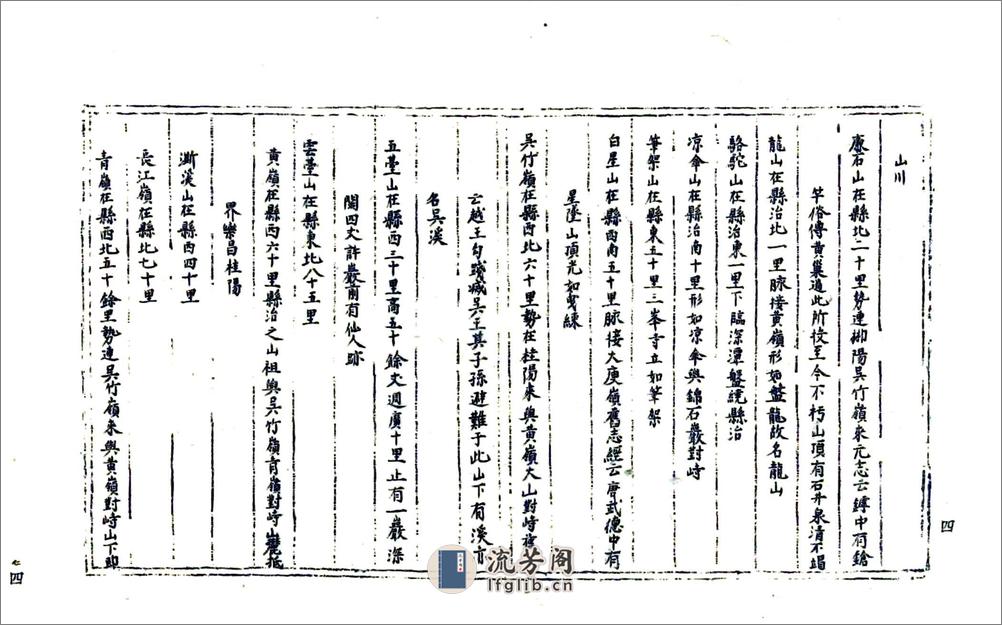 山川
康石山在縣北二十里勢連郴陽吳竹嶺來元志云罅中有鎗
竿俗傳黄巢過此所投至今不朽山頂有石井泉清不竭
龍山在縣治北一里脉接黄嶺形如盤龍故名龍山
駱駝山在縣治東一里下臨深潭盤繞縣治
凉傘山在縣治南十里形如凉傘與錦石巖對峙
筆架山在縣東五十里三峯寺立如筆架
白星山在縣西南五十里脉接大庾嶺舊志經云唐武德中有
星墜山頂光如曳練
吳竹嶺在縣西北六十里勢在桂陽來與黄嶺大山對峙
云越王勾踐滅吳王其子孫避難于此山下有溪亦
名吳溪
五臺山在縣西三十里高五十餘丈週廣十里止有一巖深
闊四丈許巖前有仙人跡
雲臺山在縣東北八十五里
黄嶺在縣西六十里縣治之山祖與吳竹嶺青嶺對峙山麓抵
界樂昌桂陽
漸溪山在縣西四十里
長江嶺在縣北七十里
青嶺在縣西北五十餘里勢連吳竹嶺來與黄嶺對峙山下即
四
四
流芳阁
lfglib.cn